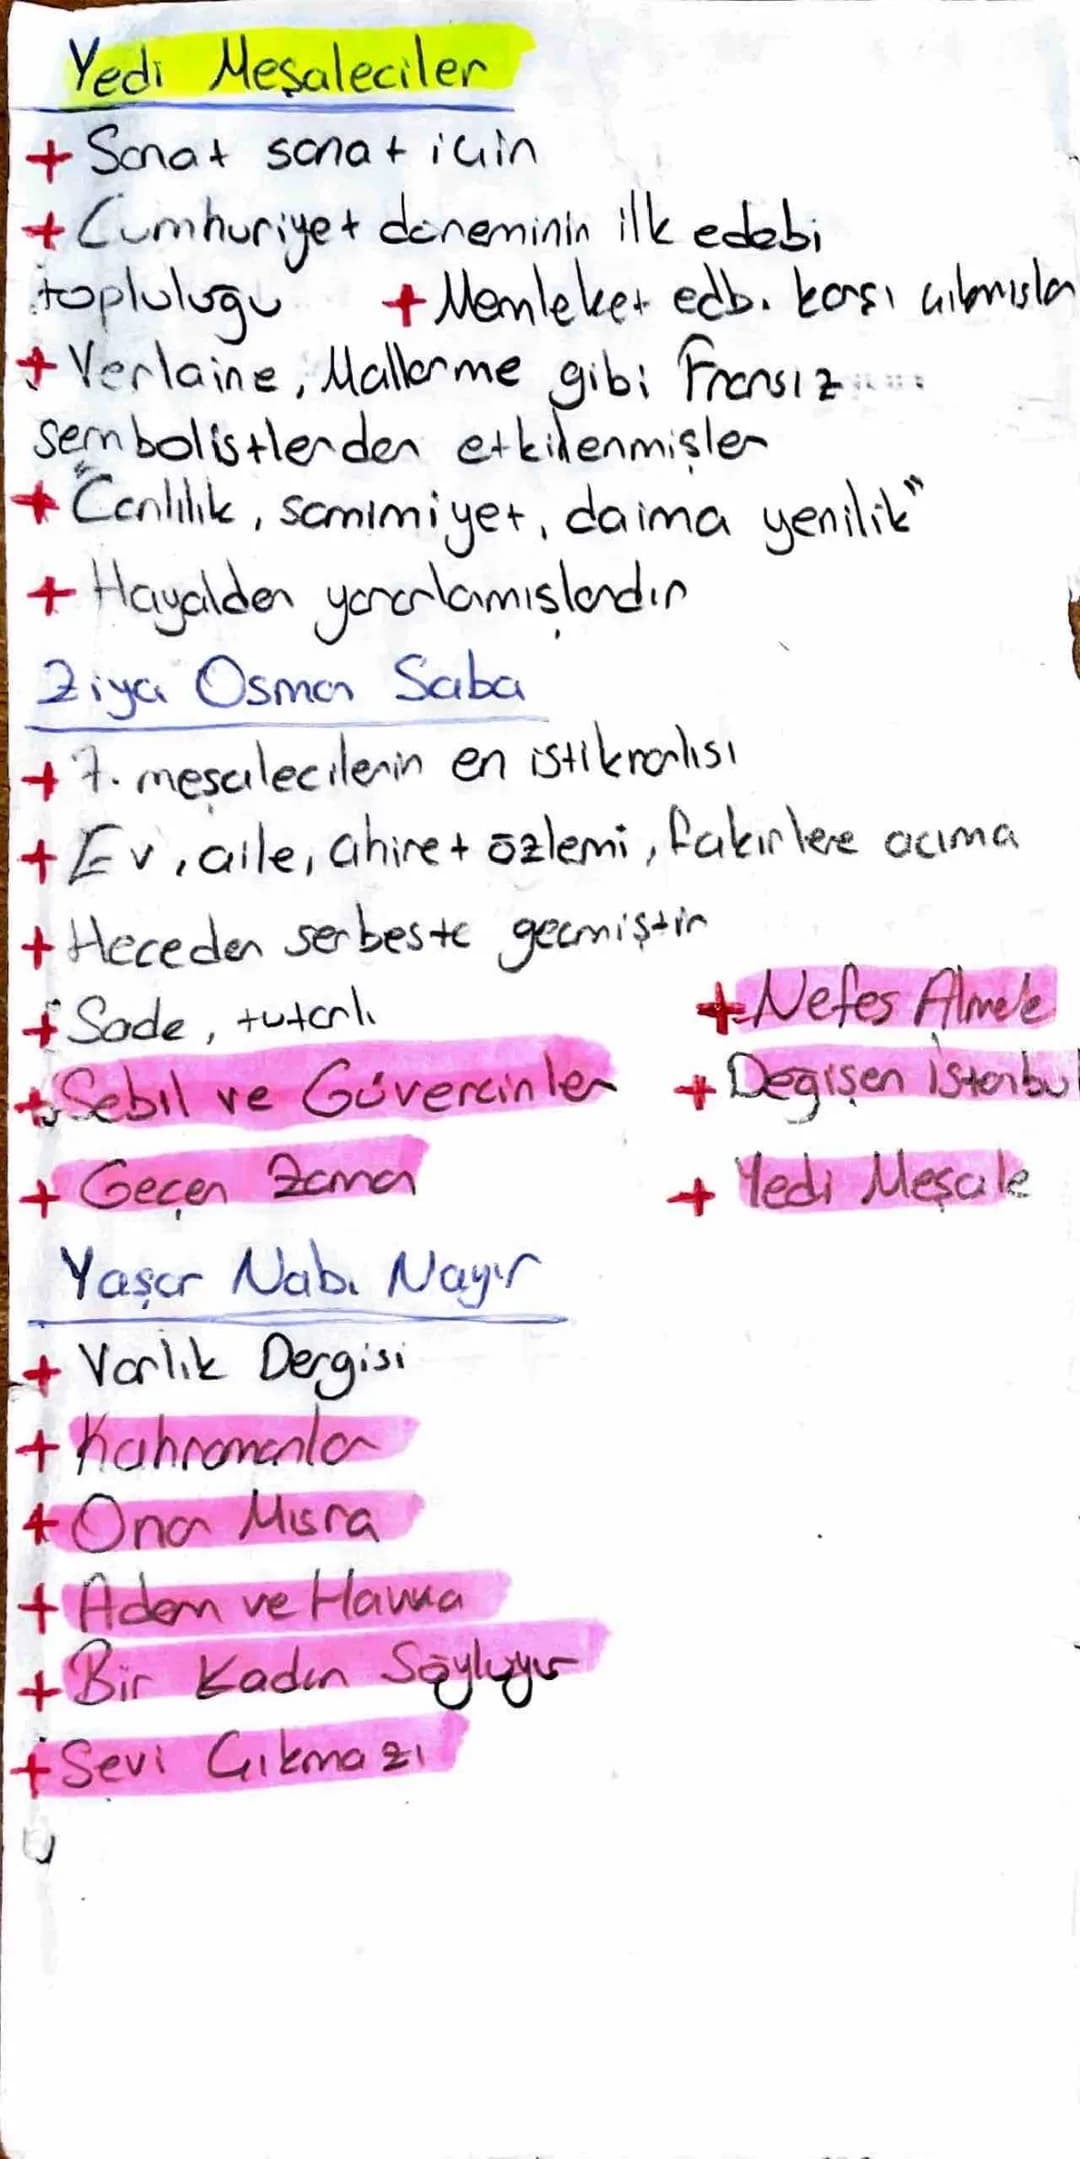 Yedi Meşaleciler
+ Sanat sanat için
+ Cumhuriyet döneminin ilk edebi
topluluğu + Memleket edb. karşı çıkmışlar
+ Verlaine, Mallarme gibi Fransız
sembolistlerden etkilenmişler
+ "Canlılık, samimiyet, daima yenilik"
+ Hayalden yararlamışlardır
Ziya Osman Saba
+ 7. meşalecilerin en istikrarlısı
+ Ev, aile, ahiret özlemi, fakirlere acıma
+ Heceden serbeste geçmiştir
+ Sade, tutarlı + Nefes Almak
+ Sebil ve Güvercinler + Değişen İstanbul
+ Geçen Zaman + Yedi Meşale
Yaşar Nabi Nayır
+ Varlık Dergisi
+ Kahramanlar
+ Onar Mısra
+ Adem ve Havva
+ Bir Kadın Söylüyor
+ Sevi Çıkmazı